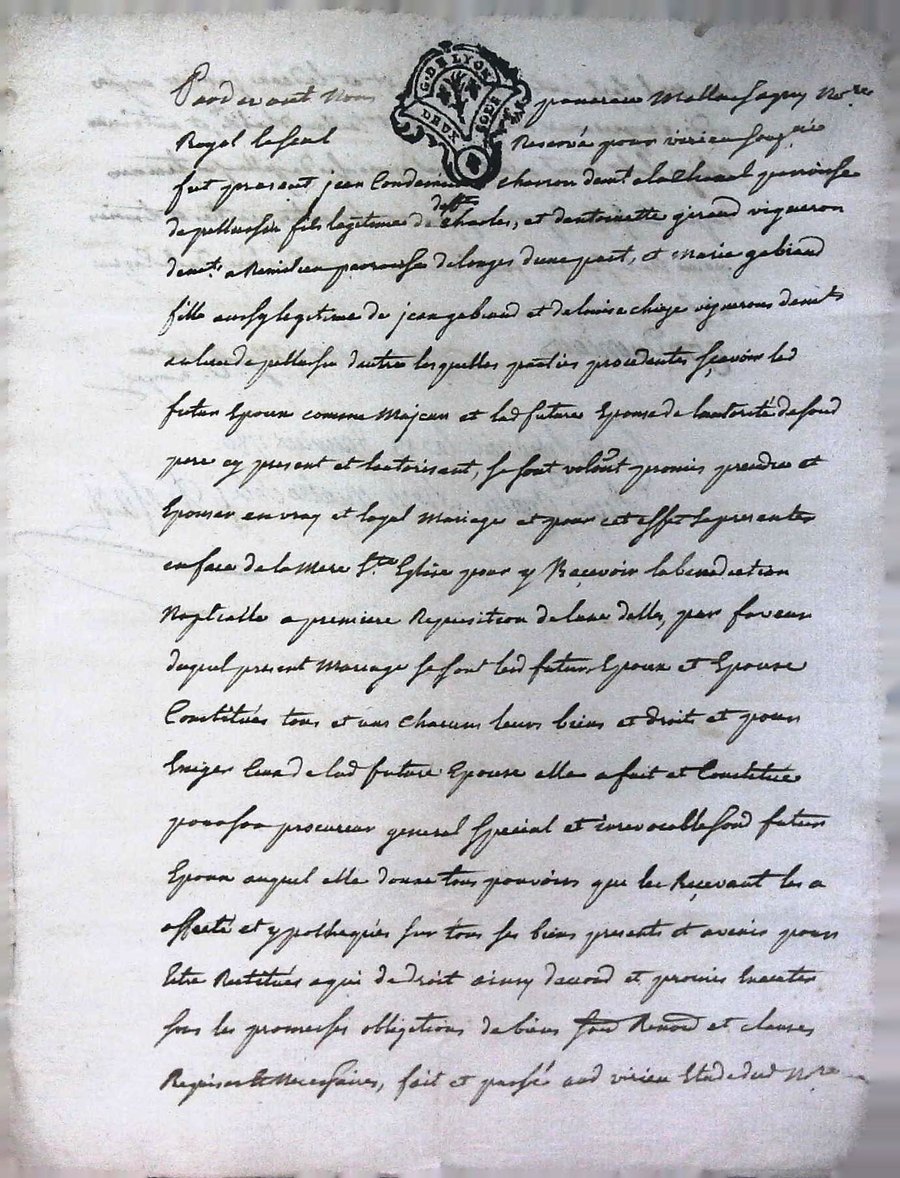 G. DE LYON
DEUX SOLS
Pardevant Nous Not.re
Royal le seul Reservé pour virieu soussigné
fut present jean Condamin charron dem.t a la Chaal parroisse
de pellussin fils legitime de deffts Charles, et d'antoinette giraud vigneron
dem.t a parroisse de longes d'une part, et Marie gabriaud
fille aussy legitime de jean gabriaud et de vignerons dem.ts
au lieu de pellussin d'autre lesquelles parties procedantes sçavoir led
futur Epoux comme Majeur et lad future Epouse de l'autorité de sond
pere cy present et l'autorisant, se sont volont promis prendre et
Epouser en vray et loyal Mariage et pour cet effet se presenter
en face de la Mere S.te Eglise pour y Reçevoir la benediction
Nuptialle a premiere Requisition de l'une d'elles, par faveur
duquel present Mariage se sont led futurs Epoux et Epouse
Constitués tous et uns chacuns leurs biens et droit et pour
Exiger Ceux de lad future Epouse elle a fait et Constitué
pour son procureur general special et irrevocable sond futur
Epoux auquel elle donne tous pouvoirs que les Reçevant les a
affecté et ypothequés sur tous ses biens presents et avenir pour
Etre Restitués a qui de droit ainsy d'accord et promis Executer
sous les promesses obligations de biens Renond et clauses
Requises & Necessaires, fait et passé aud virieu Etude dud N.re